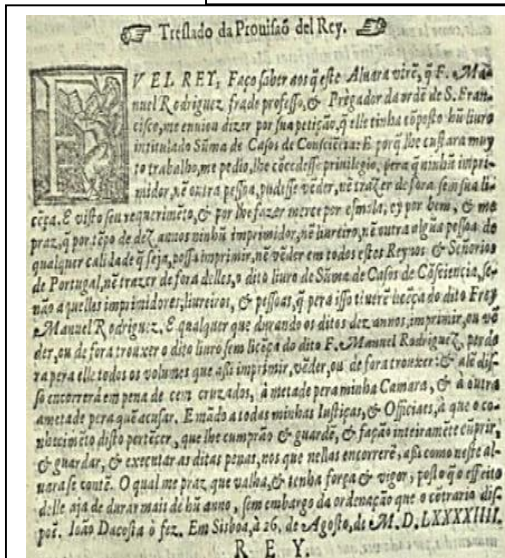 Treſlado da Prouiſaõ del Rey.
EV EL REY, Faço ſaber aos q̃ eſte Aluara virẽ, q̃ F. Ma-
nuel Rodriguez frade profeſſo, & Prègador da ordẽ de S. Fran-
ciſco, me enuiou dizer por ſua petição, q̃ elle tinha cõpoſto hũ liuro
intitulado Sũma de Caſos de Conſciẽcia: E porq̃ lhe cuſtara muy
to trabalho, me pedio, lhe cõcedeſſe priuilegio, pera q̃ ninhũ impri-
midor, nẽ outra peſſoa, pudeſſe vẽder, nẽ trazer de fora ſem ſua li-
cẽça. E viſto ſeu requerimẽto, & por lhe fazer merce por eſmola; ey por bem, & me
praz, q̃ por tẽpo de dez annos ninhũ imprimidor, nẽ liureiro, nẽ outra algũa peſſoa de
qualquer calidade q̃ ſeja, poſſa imprimir, nẽ vẽder em todos eſtes Reynos & Señorios
de Portugal, nẽ trazer de fora delles, o dito liuro de Sũma de Caſos de Cõſciencia, ſe-
não aquelles imprimidores, liureiros, & peſſoas, q̃ pera iſſo tiuerẽ licẽça do dito Frey
Manuel Rodriguez. E qualquer que durando os ditos dez annos, imprimir, ou vẽ
der, ou de fora trouxer o dito liuro ſem licẽça do dito F. Manuel Rodriguez, perde
ra pera elle todos os volumes que aſſi imprimir, vẽder, ou de fora trouxer: & alẽ diſ-
ſo encorrerà em pena de cem cruzados, à metade pera minha Camara, & à outra
ametade pera quẽ acuſar. E mãdo a todas minhas Iuſtiças, & Officiaes, à que o co-
nhecimẽto diſto pertẽcer, que lhe cumprão & guardẽ, & fação inteiramẽte cũprir,
& guardar, & executar as ditas penas, nos que nellas encorrerẽ, aſsi como neſte al-
uara ſe contẽ. O qual me praz que valha, & tenha força & vigor, poſto q̃ o effeito
delle aja de durar mais de hũ anno, ſem embargo da ordenação que o cõtrario diſ-
poẽ. Ioão Dacoſta o fez. Em Lisboa, à 26. de Agoſto, de M. D. LXXXXIIII.
R E Y.